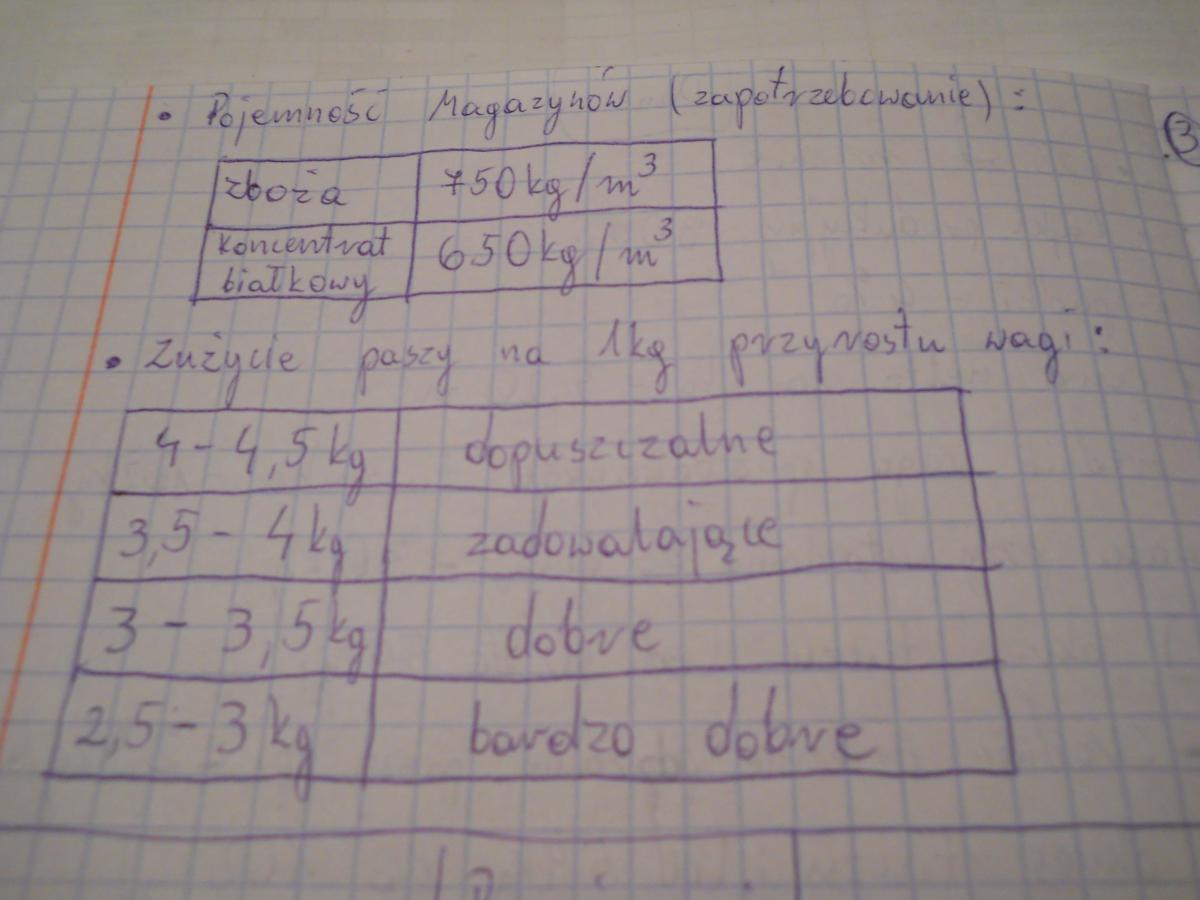 • Pojemność Magazynów (zapotrzebowanie):
3
zboża 750kg/m³
koncentrat białkowy 650kg/m³
• Zużycie paszy na 1kg przyrostu wagi:
4-4,5kg dopuszczalne
3,5-4kg zadowalające
3-3,5kg dobre
2,5-3kg bardzo dobre